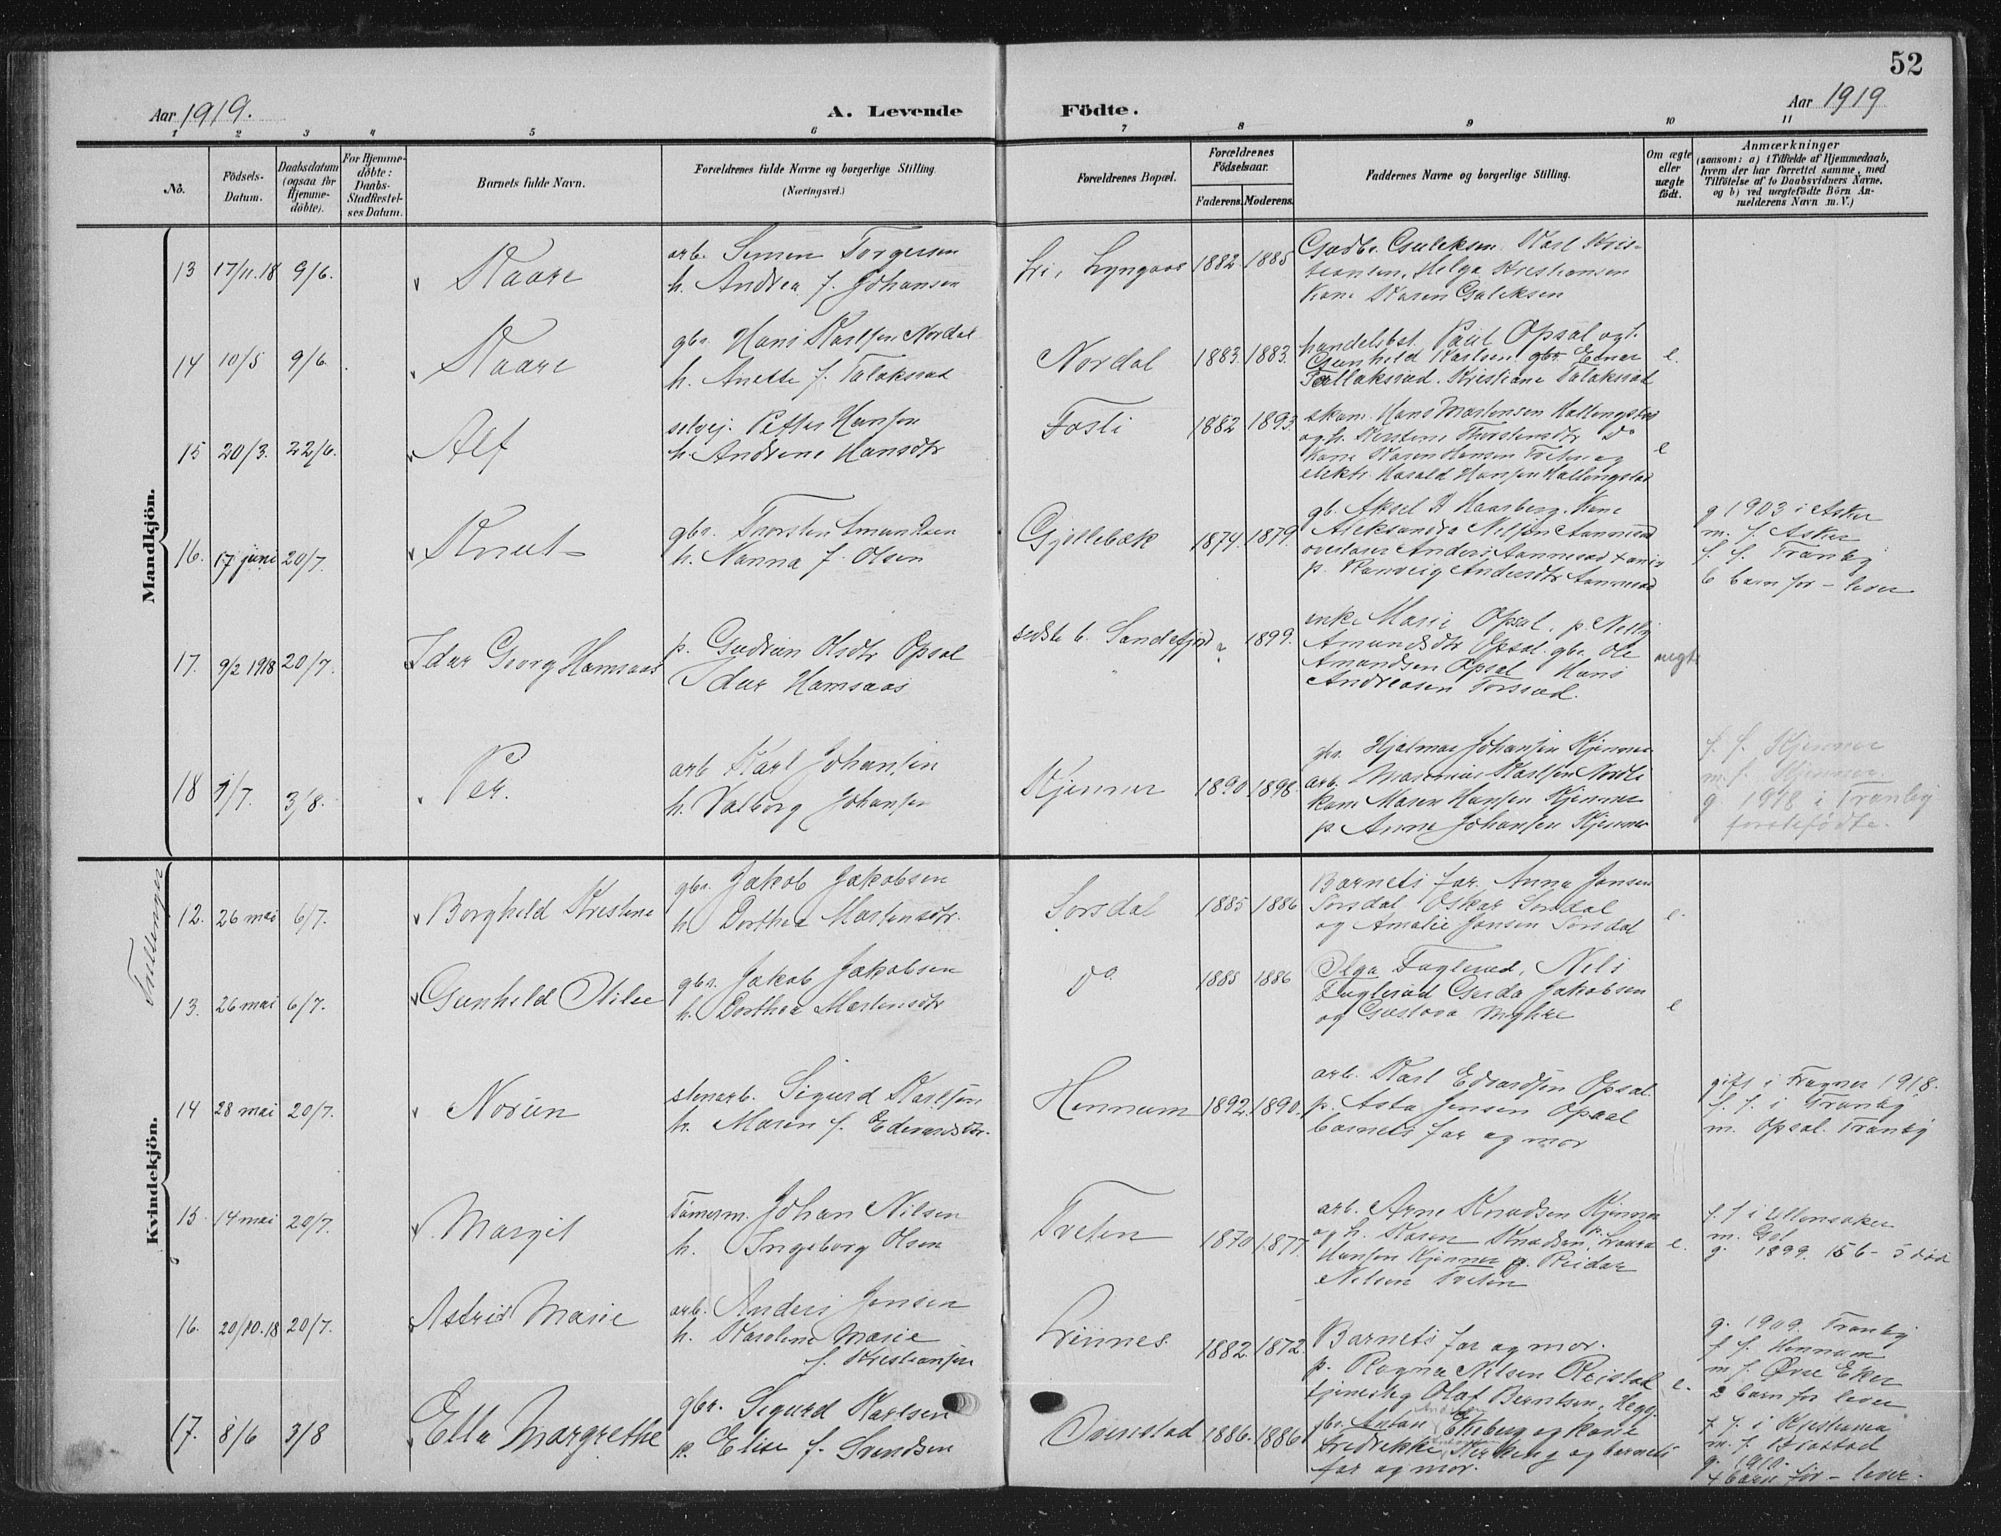 52
Aar 1919.
A. Levende
Födte.
Aar 1919
1 2 3 4 5 6 7 8 9 10 11
No.
Födsels-
Datum.
Daabsdatum
(ogsaa for
Hjemme-
döbte).
For Hjemme-
döbte:
Daabs-
Stadfæstel-
ses Datum.
Barnets fulde Navn.
Forældrenes fulde Navne og borgerlige Stilling.
(Næringsvei.)
Forældrenes Bopæl.
Forældrenes
Födselsaar.
Faderens. Moderens.
Faddernes Navne og borgerlige Stilling.
Om ægte
eller
uægte
födt.
Anmærkninger
(saasom: a) i Tilfælde af Hjemmedaab,
hvem der har forrettet samme, med
Tilföielse af to Daabsvidners Navne,
og b) ved uægtefödte Börn An-
melderens Navn m. V.)
Mandkjön.
13 17/11.18 9/6. Kaare
arb. Simen Torgersen
h. Andrea f. Johansen
Li, Lyngaas 1882 1885
Gudbr. Gulliksen. Karl Kris-
tiansen, Helga Kristiansen
Kone Karen Gulliksen
14 10/5 9/6. Kaare
gbr. Hans Karlsen Nordal
h. Anette f. Talaksrud
Nordal 1883. 1883.
handelsbst. Paul Opsal og
Gunhild Karlsen. gbr. Einar
Tallaksrud. Kristiane Talaksrud
e.
15 20/3. 22/6. Alf
selvej. Petter Hansen
h. Andrine Hansdtr
Fosli 1882 1893.
skom. Hans Martensen Hallingstad
og h. Kirstine Thorstensdtr Do
Kone Karen Hansen Tveten og
elektr. Harald Hansen Hallingstad
e
16. 17 juni 20/7. Knut
gbr. Thorsten Amundsen
h. Nanna f. Olsen
Gjellebæk 1874. 1879.
gb. Aksel Haarberg. Kone
Aleksandra Nilsen Aannerud
p. Ranveig Andersdtr Aannerud
g 1903 i Asker
m. f. Asker
f. f. Tranby
6 barn før – lever
17. 9/2 1918 20/7. Idar Georg Hamsaas
p. Gudrun Olsdtr Opsal
Idar Hamsaas
sidste b. Sandefjord ? 1899.
enke Marie Opsal. p. Nelly
Amundsdtr Opsal. gbr. Ole
Amundsen Opsal Hans
Andreasen Torsrud.
uegte
18 1/7. 3/8. Per.
arb Karl Johansen
h. Valborg Johansen
Kjenner 1890 1898
gbr. Hjalmar Johansen Kjenner
arb. Marinius Karlsen Nordli
kone Maren Hansen Kjenner
p. Anna Johansen Kjenner
f. f. Kjenner
m. f. Kjenner
g. 1918 i Tranby
førstefødte.
Kvindekjön.
Tvillinger
12. 26 mai 6/7. Borghild Kristine
gbr. Jakob Jakobsen
h. Dorthea Martensdtr.
Sørsdal 1885 1886
Barnets far. Anna Jonsen
Sørsdal Oskar Sørsdal
og Amalie Jonsen Sørsdal
e.
13. 26 mai 6/7. Gunhild Otilie
gbr. Jakob Jakobsen
h. Dorthea Martensdtr
Do 1885 1886
Olga Fuglerud, Nils
Fuglerud Gerda Jakobsen
og Gustava Myhre
e
14 28 mai 20/7. Norun
stenarb. Sigurd Karlsen
h. Maren f. Edvardsdtr.
Hennum 1892. 1890.
arb. Karl Edvardsen Opsal.
p. Asta Jensen Opsal
barnets far og mor
gift i Fragner 1918.
f. f. i Tranby
m. Opsal. Tranby
15 14 mai 20/7. Margit
Tømerm. Johan Nilsen
h. Ingeborg Olsen
Tveten 1870 1877.
arb. Arne Knudsen Kjenner
og h. Karen Knudsen, p. Laura
Hansen Kjenner p. Reidar
Nilsen Tveten
e.
f. f i Ullensaker
m. Gol
g. 1899. 15 b – 5 død
16. 20/10.18 20/7. Astrid Marie
arb. Anders Jensen
h. Karoline Marie
f. Kristiansen
Linnes. 1882. 1872.
Barnets far og mor.
p. Ragna Nilsen Reistad
Olaf Berntsen, Hegg.
e.
g. 1909. Tranby
f. f. Hennum
m. f. Øvre Eker
2 barn før lever
17. 8/6 3/8 Ella Margrethe
gbr. Sigurd Karlsen
p. Elise f. Svendsen
1886. 1886
gbr. Anton Ekeberg og kone
Fredrikke og barnets
far og mor.
f. f. i Kristiania
m. f.
g. 1910.
4 barn før – lever.